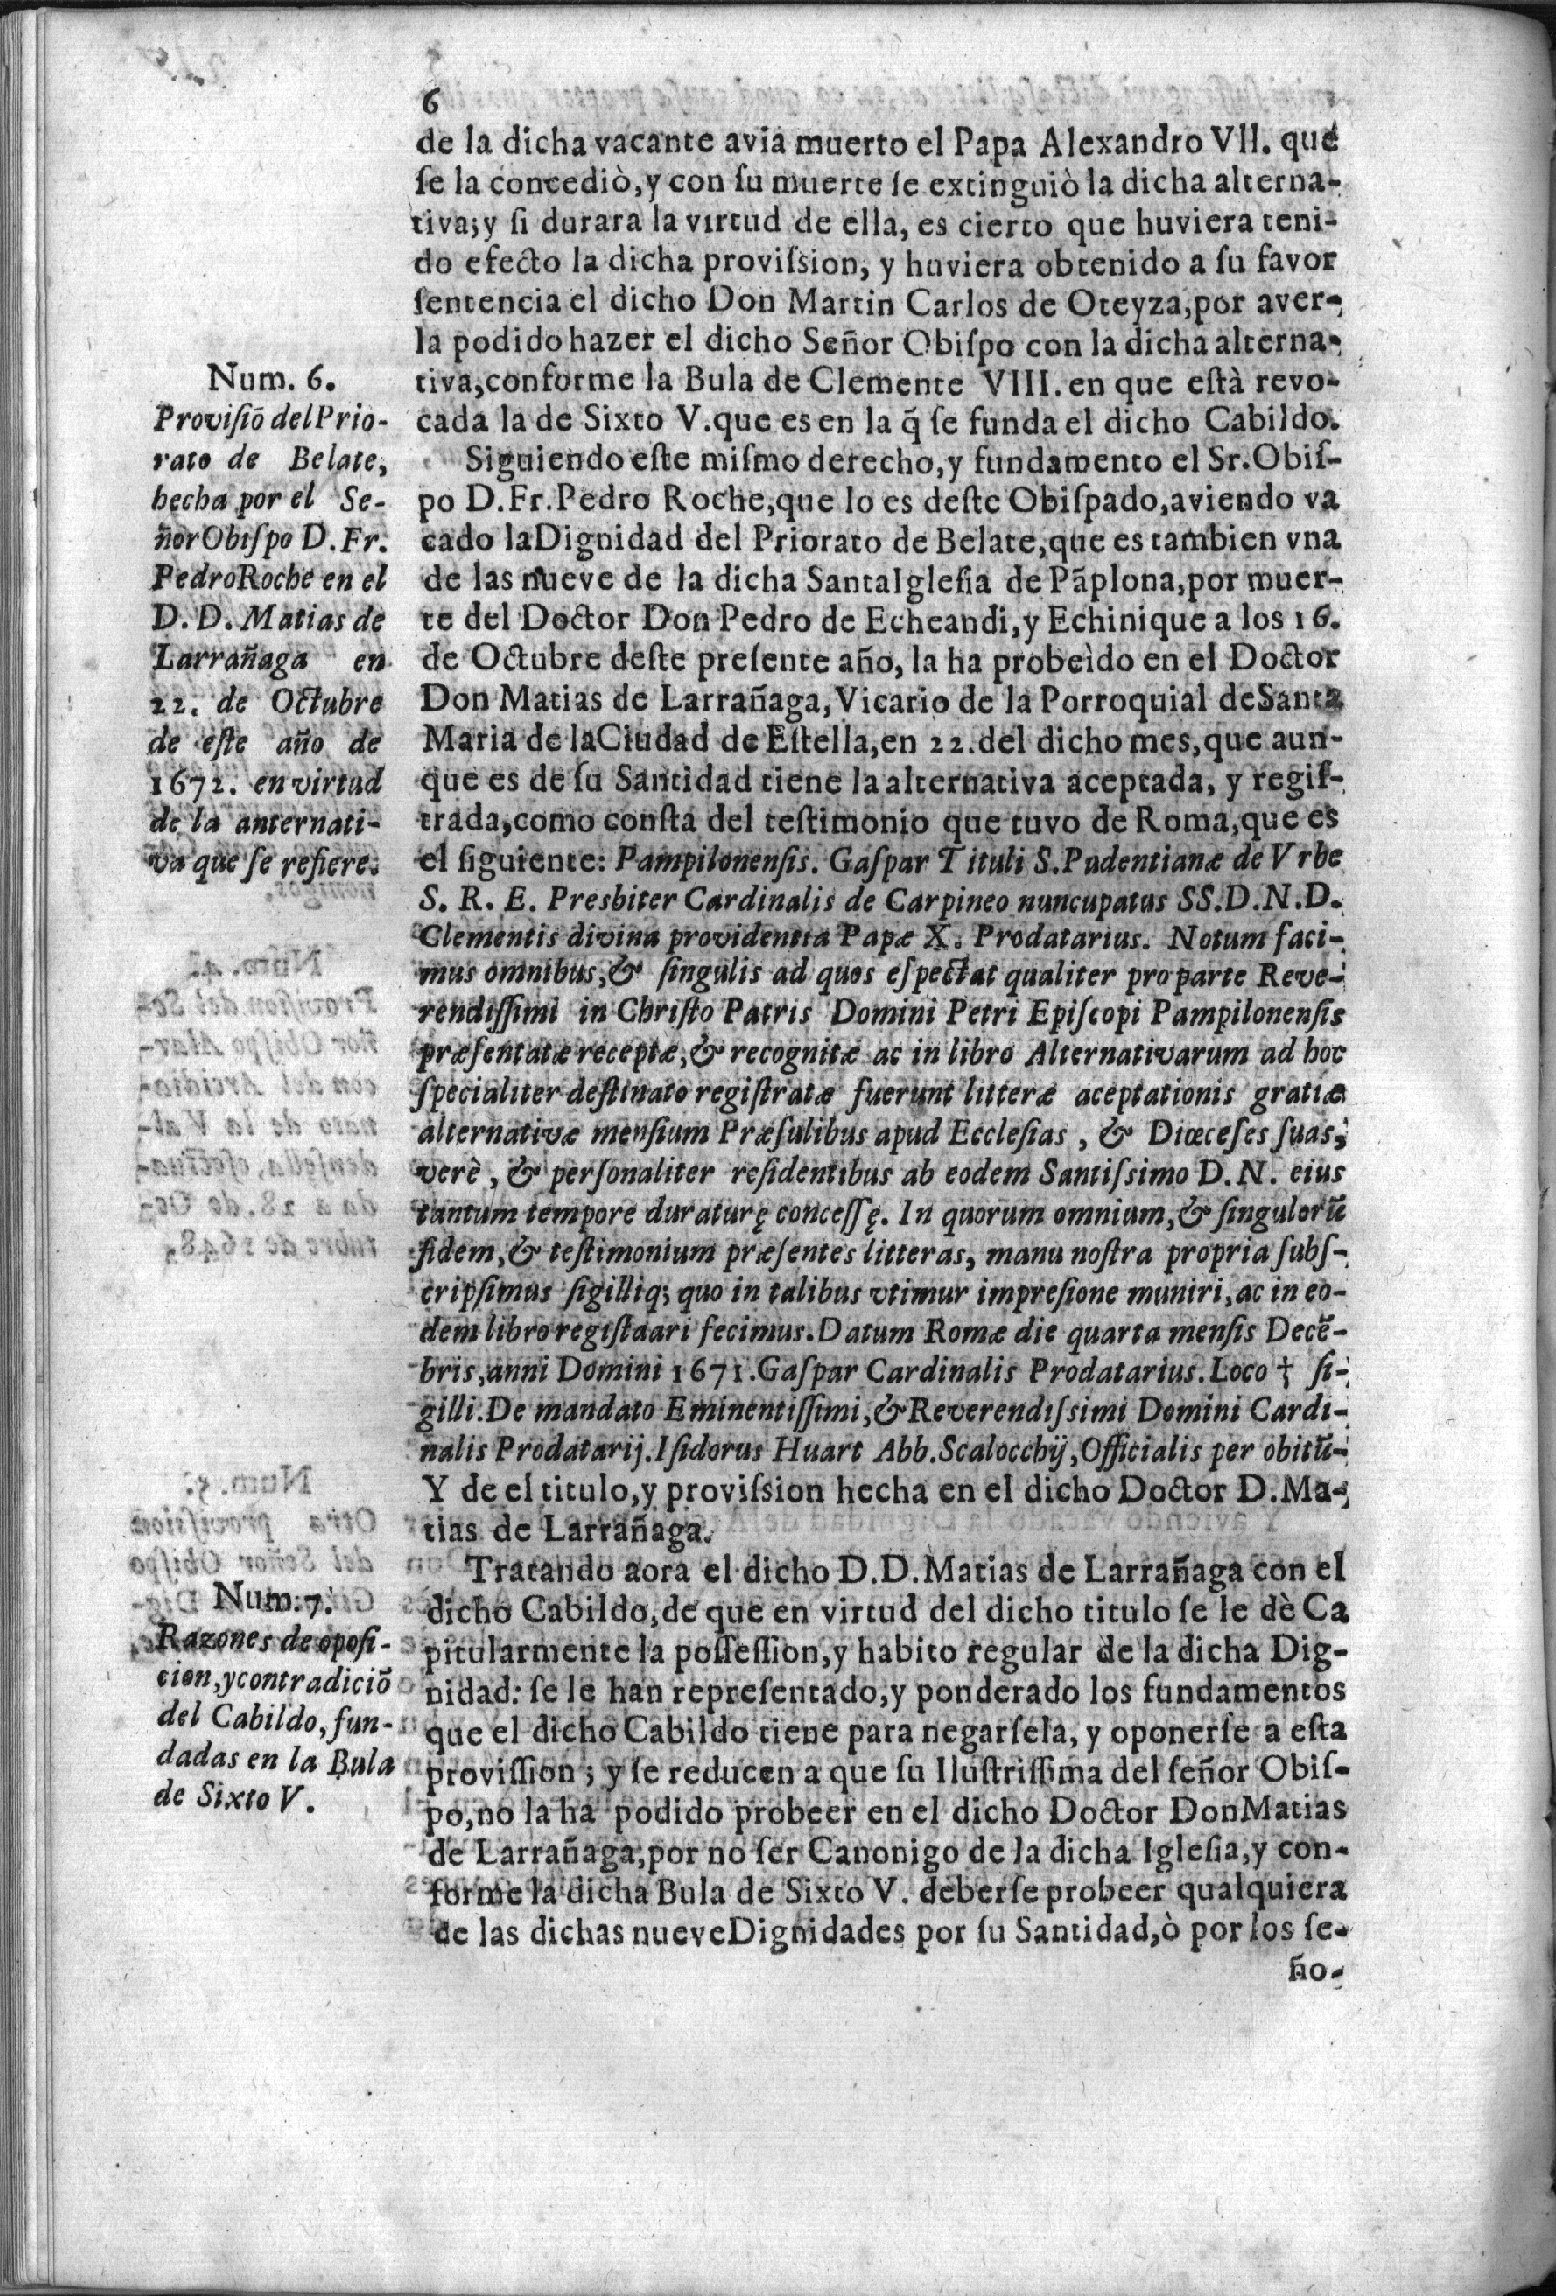 6
de la dicha vacante avia muerto el Papa Alexandro VII. que
ſe la concediò, y con ſu muerte ſe extinguiò la dicha alterna-
tiva; y ſi durara la virtud de ella, es cierto que huviera teni-
do efecto la dicha proviſsion, y huviera obtenido a ſu favor
ſentencia el dicho Don Martin Carlos de Oteyza, por aver-
la podido hazer el dicho Señor Obiſpo con la dicha alterna-
tiva, conforme la Bula de Clemente VIII. en que eſtà revo-
cada la de Sixto V. que es en la q̃ ſe funda el dicho Cabildo.
Num. 6.
Proviſiõ del Prio-
rato de Belate,
hecha por el Se-
ñor Obiſpo D. Fr.
Pedro Roche en el
D. D. Matias de
Larrañaga en
22. de Octubre
de eſte año de
1672. en virtud
de la anternati-
va que ſe refiere.
Siguiendo eſte miſmo derecho, y fundamento el Sr. Obiſ-
po D. Fr. Pedro Roche, que lo es deſte Obiſpado, aviendo va
cado la Dignidad del Priorato de Belate, que es tambien vna
de las nueve de la dicha Santa Igleſia de Pãplona, por muer-
te del Doctor Don Pedro de Echeandi, y Echinique a los 16.
de Octubre deſte preſente año, la ha probeìdo en el Doctor
Don Matias de Larrañaga, Vicario de la Porroquial de Santa
Maria de la Ciudad de Eſtella, en 22. del dicho mes, que aun-
que es de ſu Santidad tiene la alternativa aceptada, y regiſ-
trada, como conſta del teſtimonio que tuvo de Roma, que es
el ſiguiente: Pampilonenſis. Gaſpar Tituli S. Pudentianæ de Vrbe
S. R. E. Presbiter Cardinalis de Carpineo nuncupatus SS. D. N. D.
Clementis divina providentia Papæ X. Prodatarius. Notum faci-
mus omnibus, & ſingulis ad quos eſpectat qualiter pro parte Reve-
rendiſſimi in Chriſto Patris Domini Petri Epiſcopi Pampilonenſis
præſentatæ receptæ, & recognitæ ac in libro Alternativarum ad hoc
ſpecialiter deſtinato regiſtratæ fuerunt litteræ aceptationis gratiæ
alternativæ menſium Præſulibus apud Eccleſias, & Diœceſes ſuas,
verè, & perſonaliter reſidentibus ab eodem Santiſsimo D. N. eius
tantum tempore duraturę conceſſę. In quorum omnium, & ſingulorũ
fidem, & teſtimonium præſentes litteras, manu noſtra propria ſubſ-
cripſimus ſigilliq; quo in talibus vtimur impreſione muniri, ac in eo-
dem libro regiſtaari fecimus. Datum Romæ die quarta menſis Decẽ-
bris, anni Domini 1671. Gaſpar Cardinalis Prodatarius. Loco † ſi-
gilli. De mandato Eminentiſſimi, & Reverendiſsimi Domini Cardi-
nalis Prodatarij. Iſidorus Huart Abb. Scalocchij, Officialis per obitũ-
Y de el titulo, y proviſsion hecha en el dicho Doctor D. Ma-
tias de Larrañaga.
Num. 7.
Razones de opoſi-
cion, y contradiciõ
del Cabildo, fun-
dadas en la Bula
de Sixto V.
Tratando aora el dicho D. D. Matias de Larrañaga con el
dicho Cabildo, de que en virtud del dicho titulo ſe le dè Ca
pitularmente la poſſeſſion, y habito regular de la dicha Dig-
nidad: ſe le han repreſentado, y ponderado los fundamentos
que el dicho Cabildo tiene para negarſela, y oponerſe a eſta
proviſſion; y ſe reducen a que ſu Iluſtriſſima del ſeñor Obiſ-
po, no la ha podido probeer en el dicho Doctor Don Matias
de Larrañaga, por no ſer Canonigo de la dicha Igleſia, y con-
forme la dicha Bula de Sixto V. deberſe probeer qualquiera
de las dichas nueve Dignidades por ſu Santidad, ò por los ſe-
ño-